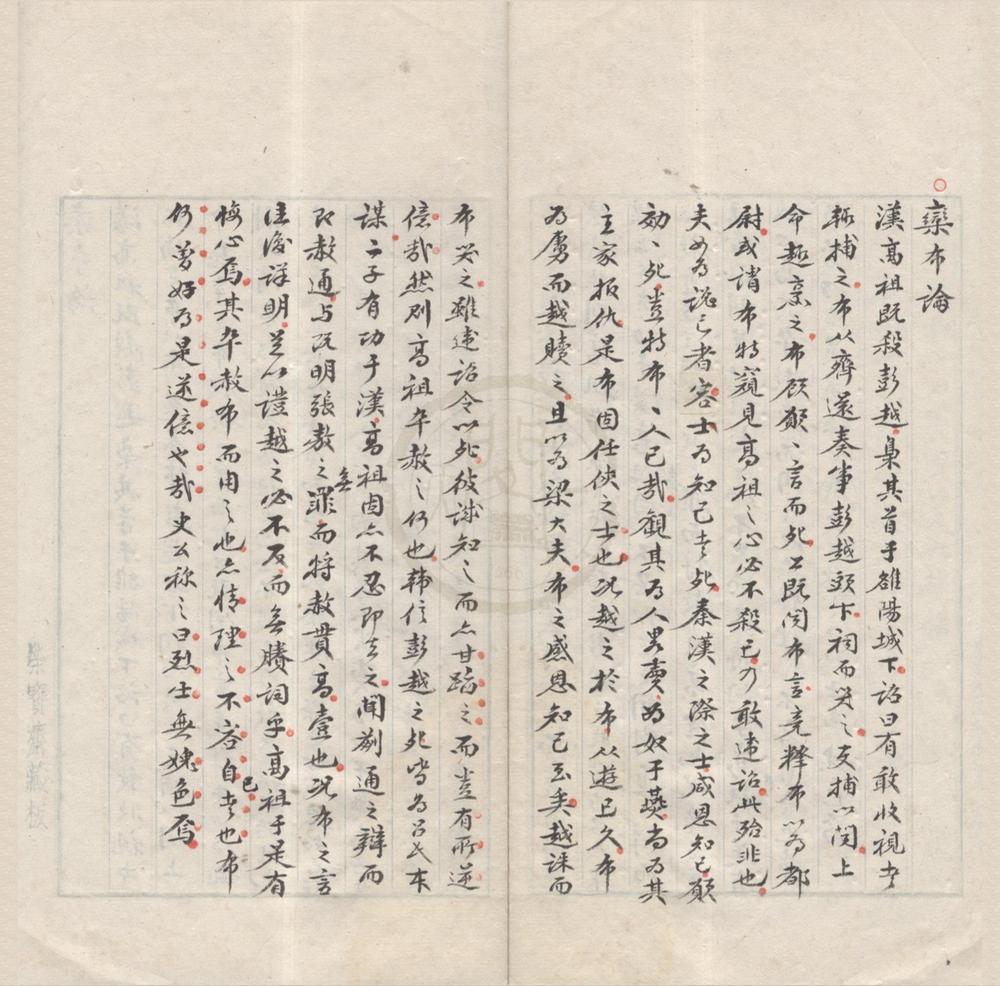 欒布論
漢高祖既殺彭越梟其首于雒陽城下詔曰有敢收視者
輒捕之布從齊還奏事彭越頭下祠而哭之吏捕以聞上
命趣烹之布顧願一言而死上既聞布言竟釋布以為都
尉或謂布特窺見高祖之心必不殺己乃敢違詔此殆非也
夫女為說己者容士為知己者死秦漢之際之士感恩知己願
効一死豈特布一人已哉觀其為人畧賣為奴于燕尚為其
主家报仇是布固任俠之士也况越之於布從遊已久布
為虜而越贖之且以為梁大夫布之感恩知己至矣越誅而
布哭之雖違詔令以死彼誠知之而亦甘蹈之而豈有所逆
億哉然則高祖卒赦之何也韩信彭越之死皆為呂氏本
謀二子有功于漢高祖固亦不忍即去之聞蒯通之辯而
即赦通与既明張敖之無罪而将赦貫高壹也况布之言
往復詳明足以證越之必不反而無賸詞乎高祖于是有
悔心焉其卒赦布而用之也亦情理之不容自已者也布
何曾好為是逆億也哉史公称之曰烈士無媿色焉